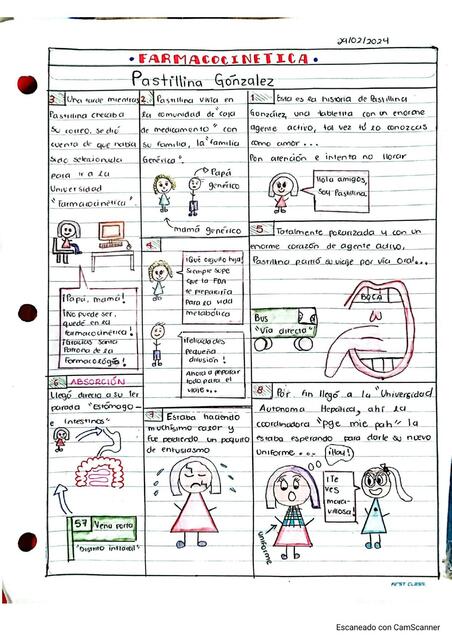 29/02/2024
• FARMACOCINETICA •
Pastillina Gónzalez
1. Esta es la historia de Pastillina
González, una tabletita con un enorme
agente activo, tal vez tú lo conozcas
como amor...
Pon atención e intenta no llorar
¡Hola amigos,
soy Pastillina
2. Pastillina vivía en
la comunidad de "caja
de medicamento" con
su familia, la "familia
Genérica".
Papá
genérico
mamá genérico
3. Una tarde mientras
Pastillina checaba
su correo, se dió
cuenta de que había
sido seleccionada
para ir a la
Universidad
"Farmacocinética"
¡Papá, mamá!
¡No puede ser,
quedé en la
farmacocinética!
¡Gracias Santa
Patrona de la
Farmacología!
4.
¡Qué orgullo hija!
Siempre supe
que la FDA
te prepararía
para la vida
metabólica
¡Felicidades
pequeña
difusión!
Ahora a preparar
todo para el
viaje...
5. Totalmente polarizada y con un
enorme corazón de agente activo,
Pastillina partió su viaje por vía Oral...
Bus
"Vía directa"
BOCA
6. ABSORCIÓN
Llegó directo a su 1er
parada "Estómago
e Intestinos"
57 Vena porta
"Distrito intestinal"
7. Estaba haciendo
muchísimo calor y
fue perdiendo un poquito
de entusiasmo
8. Por fin llegó a la "Universidad
Autonoma Hepática, ahí la
coordinadora "pge mic pah" la
estaba esperando para darle su nuevo
uniforme...
¡Hay!
¡Te
ves
mara-
villosa!
uniforme
FIRST CLASS
Escaneado con CamScanner